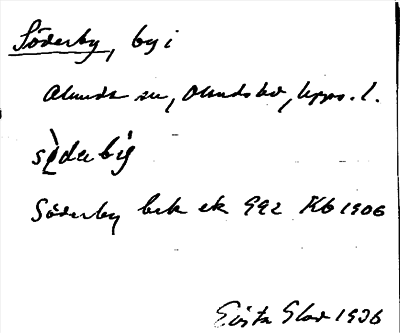 Söderby, by i
Almunge sn, Olands hd, Upps. l.
sø̀darbý
Söderby bek ek 992 Kb 1906
Gösta Olov 1936